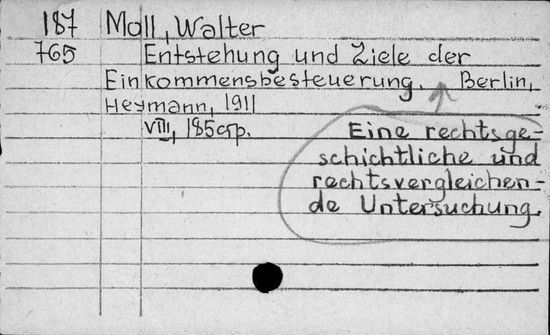 187 Moll, Walter
765 Entstehung und Ziele der
Einkommensbesteuerung. Berlin,
Heymann, 1911
VIII, 185 csp.
Eine rechtsge-
schichtliche und
rechtsvergleichen-
de Untersuchung.